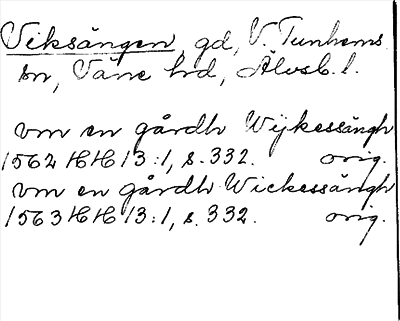 Viksängen, gd, V. Tunhems
sn, Väne hd, Älvsb. l.
vm en gårdh Wijkessängh
1562 HH 13:1, s. 332. orig.
vm en gårdh Wickessängh
1563 HH 13:1, s. 332. orig.